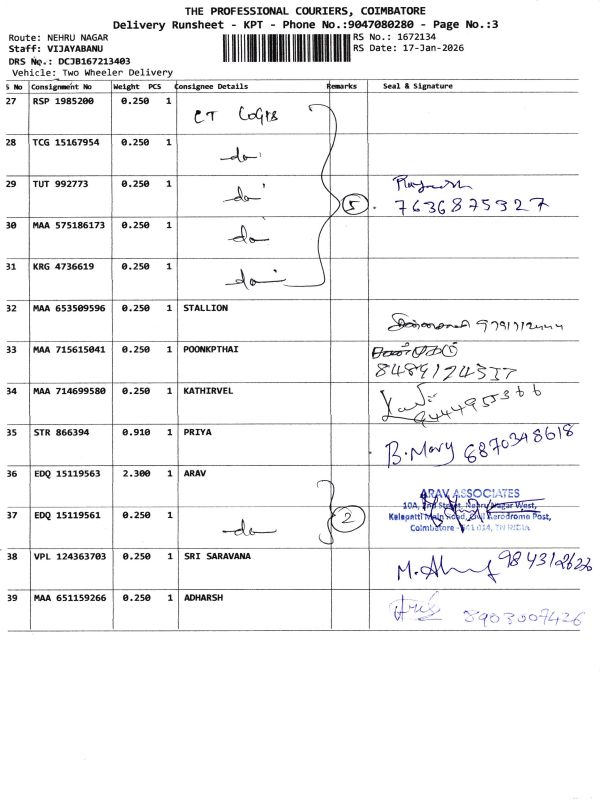 THE PROFESSIONAL COURIERS, COIMBATORE
Delivery Runsheet - KPT - Phone No.:9047080280 - Page No.:3
Route: NEHRU NAGAR
RS No.: 1672134
Staff: VIJAYABANU
RS Date: 17-Jan-2026
DRS No.: DCJB167213403
Vehicle: Two Wheeler Delivery
S No Consignment No Weight PCS Consignee Details Remarks Seal & Signature
27 RSP 1985200 0.250 1 CT
28 TCG 15167954 0.250 1 do
29 TUT 992773 0.250 1 do 5 7636875327
30 MAA 575186173 0.250 1 do
31 KRG 4736619 0.250 1 do
32 MAA 653509596 0.250 1 STALLION
33 MAA 715615041 0.250 1 POONKPTHAI
34 MAA 714699580 0.250 1 KATHIRVEL
35 STR 866394 0.910 1 PRIYA B. Mary 6870348618
36 EDQ 15119563 2.300 1 ARAV ARAV ASSOCIATES
10A, 2nd Street, Nehru Nagar West,
37 EDQ 15119561 0.250 1 do 2 Kalapatti Main Road, Civil Aerodrome Post,
Coimbatore - 641 014, TN INDIA
38 VPL 124363703 0.250 1 SRI SARAVANA M. 9843126226
39 MAA 651159266 0.250 1 ADHARSH 8903007426